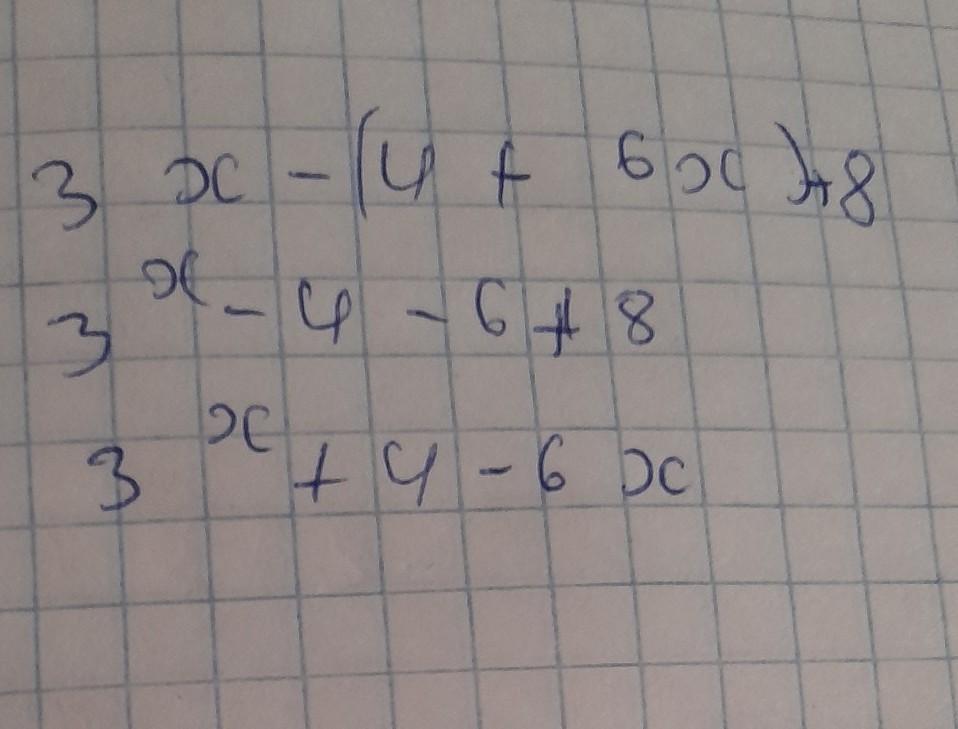 3 x - (4 + 6x) + 8
3^x - 4 - 6 + 8
3^x + 4 - 6 x